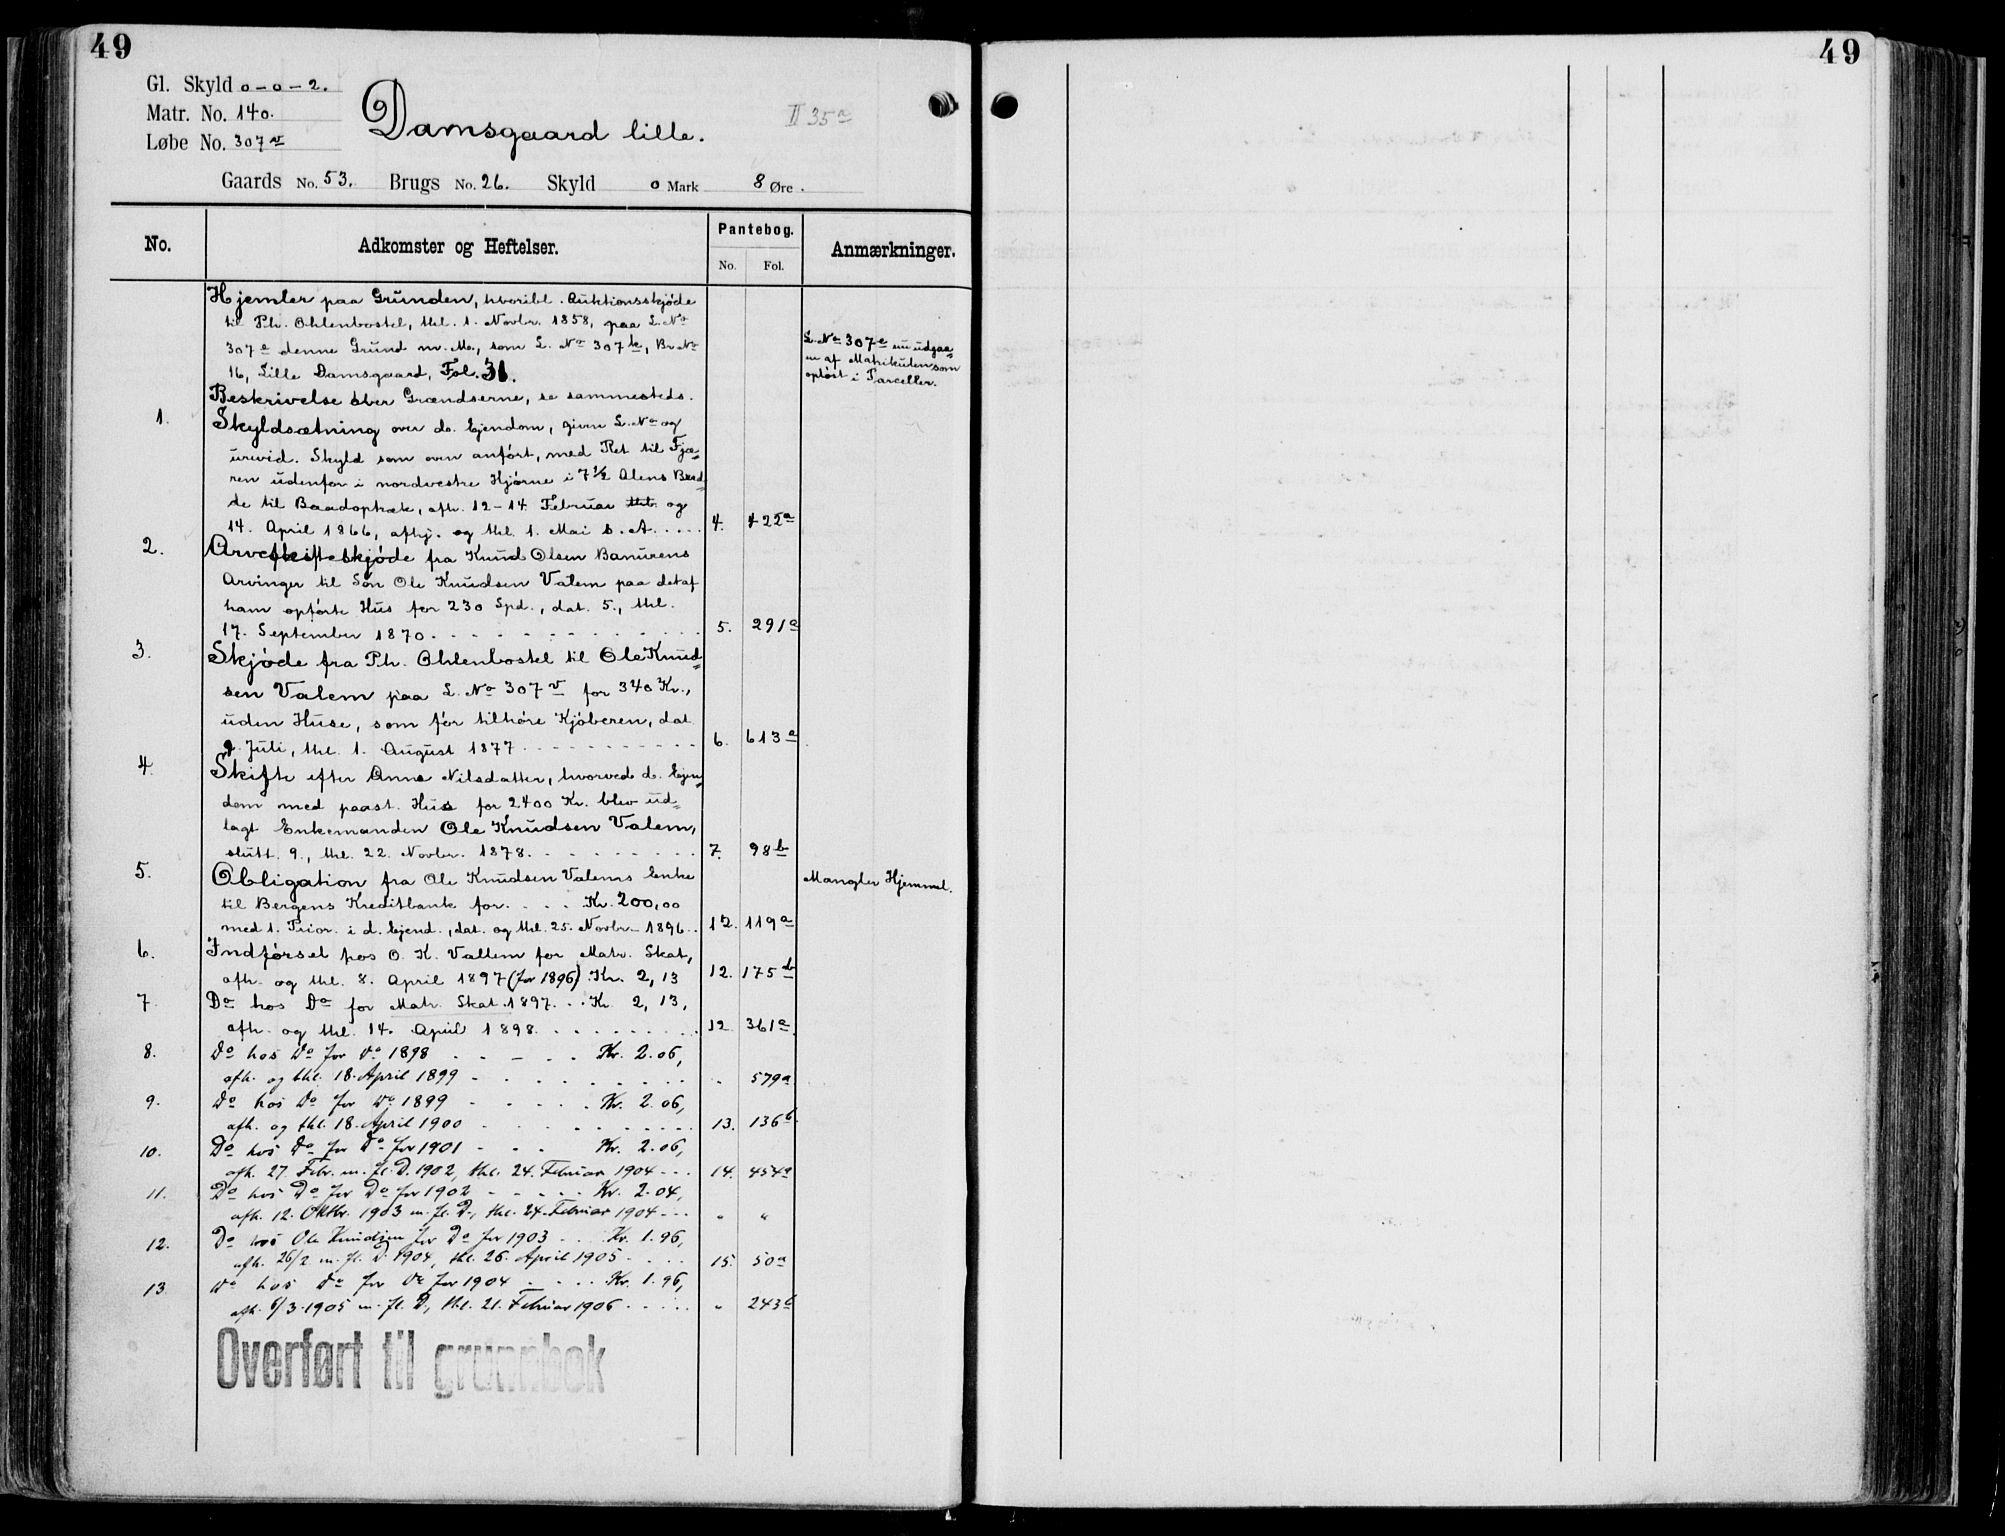 49
49
Gl. Skyld 0-0-2.
Matr. No. 140.
Løbe No. 307 v
Damsgaard lille.
II 35 a
Gaards No. 53. Brugs No. 26. Skyld 0 Mark 8 Øre.
No. Adkomster og Heftelser. Pantebog. No. Fol. Anmærkninger.
Hjemler paa Grunden, hvoribl. Auktionsskjøde
til Ph. Ohlenbostel, thl. 1. Novbr. 1858, paa L. No
307 a denne Grund m. M., som L. No 307 k, Br No
16, Lille Damsgaard, Fol. 31.
L. No 307 a nu udgaa=
en af Matrikulen som
opløst i Parceller.
Beskrivelse over Grændserne, se sammesteds.
1. Skyldsætning over ds. Ejendom, given L. No og
urevid. Skyld som oven anført, med Ret til Fjæ=
ren udenfor i nordvestre Hjørne i 7½ Alens Bred=
de til Baadoptræk, afh. 12-14 Februar thl. og
14. April 1866, afhj. og thl. 1. Mai s. A. 4. 422 a
2. Arvefesteskjøde fra Knud Olsen Banurens
Arvinger til Søn Ole Knudsen Valem paa det af
ham opførte Hus for 230 Spd., dat. 5., thl.
17. September 1870 5. 291 a
3. Skjøde fra Ph. Ohlenbostel til Ole Knud=
sen Valem paa L. No 307 v for 340 Kr.,
uden Huse, som før tilhøre Kjøberen, dat
9. Juli, thl. 1. August 1877 6. 613 a
4. Skifte efter Anna Nilsdatter, hvorved ds. Ejen=
dom med paast. Hus for 2400 Kr. blev ud=
lagt Enkemanden Ole Knudsen Valem,
slutt. 9., thl. 22. Novbr. 1878. 7. 98 b
5. Obligation fra Ole Knudsen Valems Enke
til Bergens Kreditbank for Kr. 200,00
med 1. Prior. i d. Ejend., dat. og thl. 25. Novbr. 1896. 12. 119 a
Mangler Hjemmel.
6. Indførsel hos O. K. Vallem for Matr. Skat,
afh. og thl. 8. April 1897 (for 1896) Kr. 2,13 12. 175 b
7. Do hos Do for Matr. Skat 1897. Kr. 2,13,
afh. og thl. 14. April 1898. 12 361 a.
8. Do hos Do for Do 1898 Kr. 2.06,
afh. og thl. 18. April 1899 " 579 a
9. Do hos Do for Do 1899 Kr. 2.06,
afh. og thl. 18. April 1900 13. 136 b
10. Do hos Do for Do for 1901 Kr. 2.06,
afh. 27. Febr. m. fl. D. 1902, thl. 24. Februar 1904 14. 454 a
11. Do hos Do for Do for 1902 Kr. 2.04,
afh. 12. Oktbr. 1903 m. fl. D., thl. 24. Februar 1904 " "
12. Do hos Ole Knudsen for Do for 1903 Kr. 1.96,
afh. 26/2 m. fl. D. 1904, thl. 26. April 1905 15. 50 a
13. Do hos Do for Do for 1904 Kr. 1.96,
afh. 6/3 1905 m. fl. D, thl. 21. Februar 1906 " 243 b
Overført til grunnbok